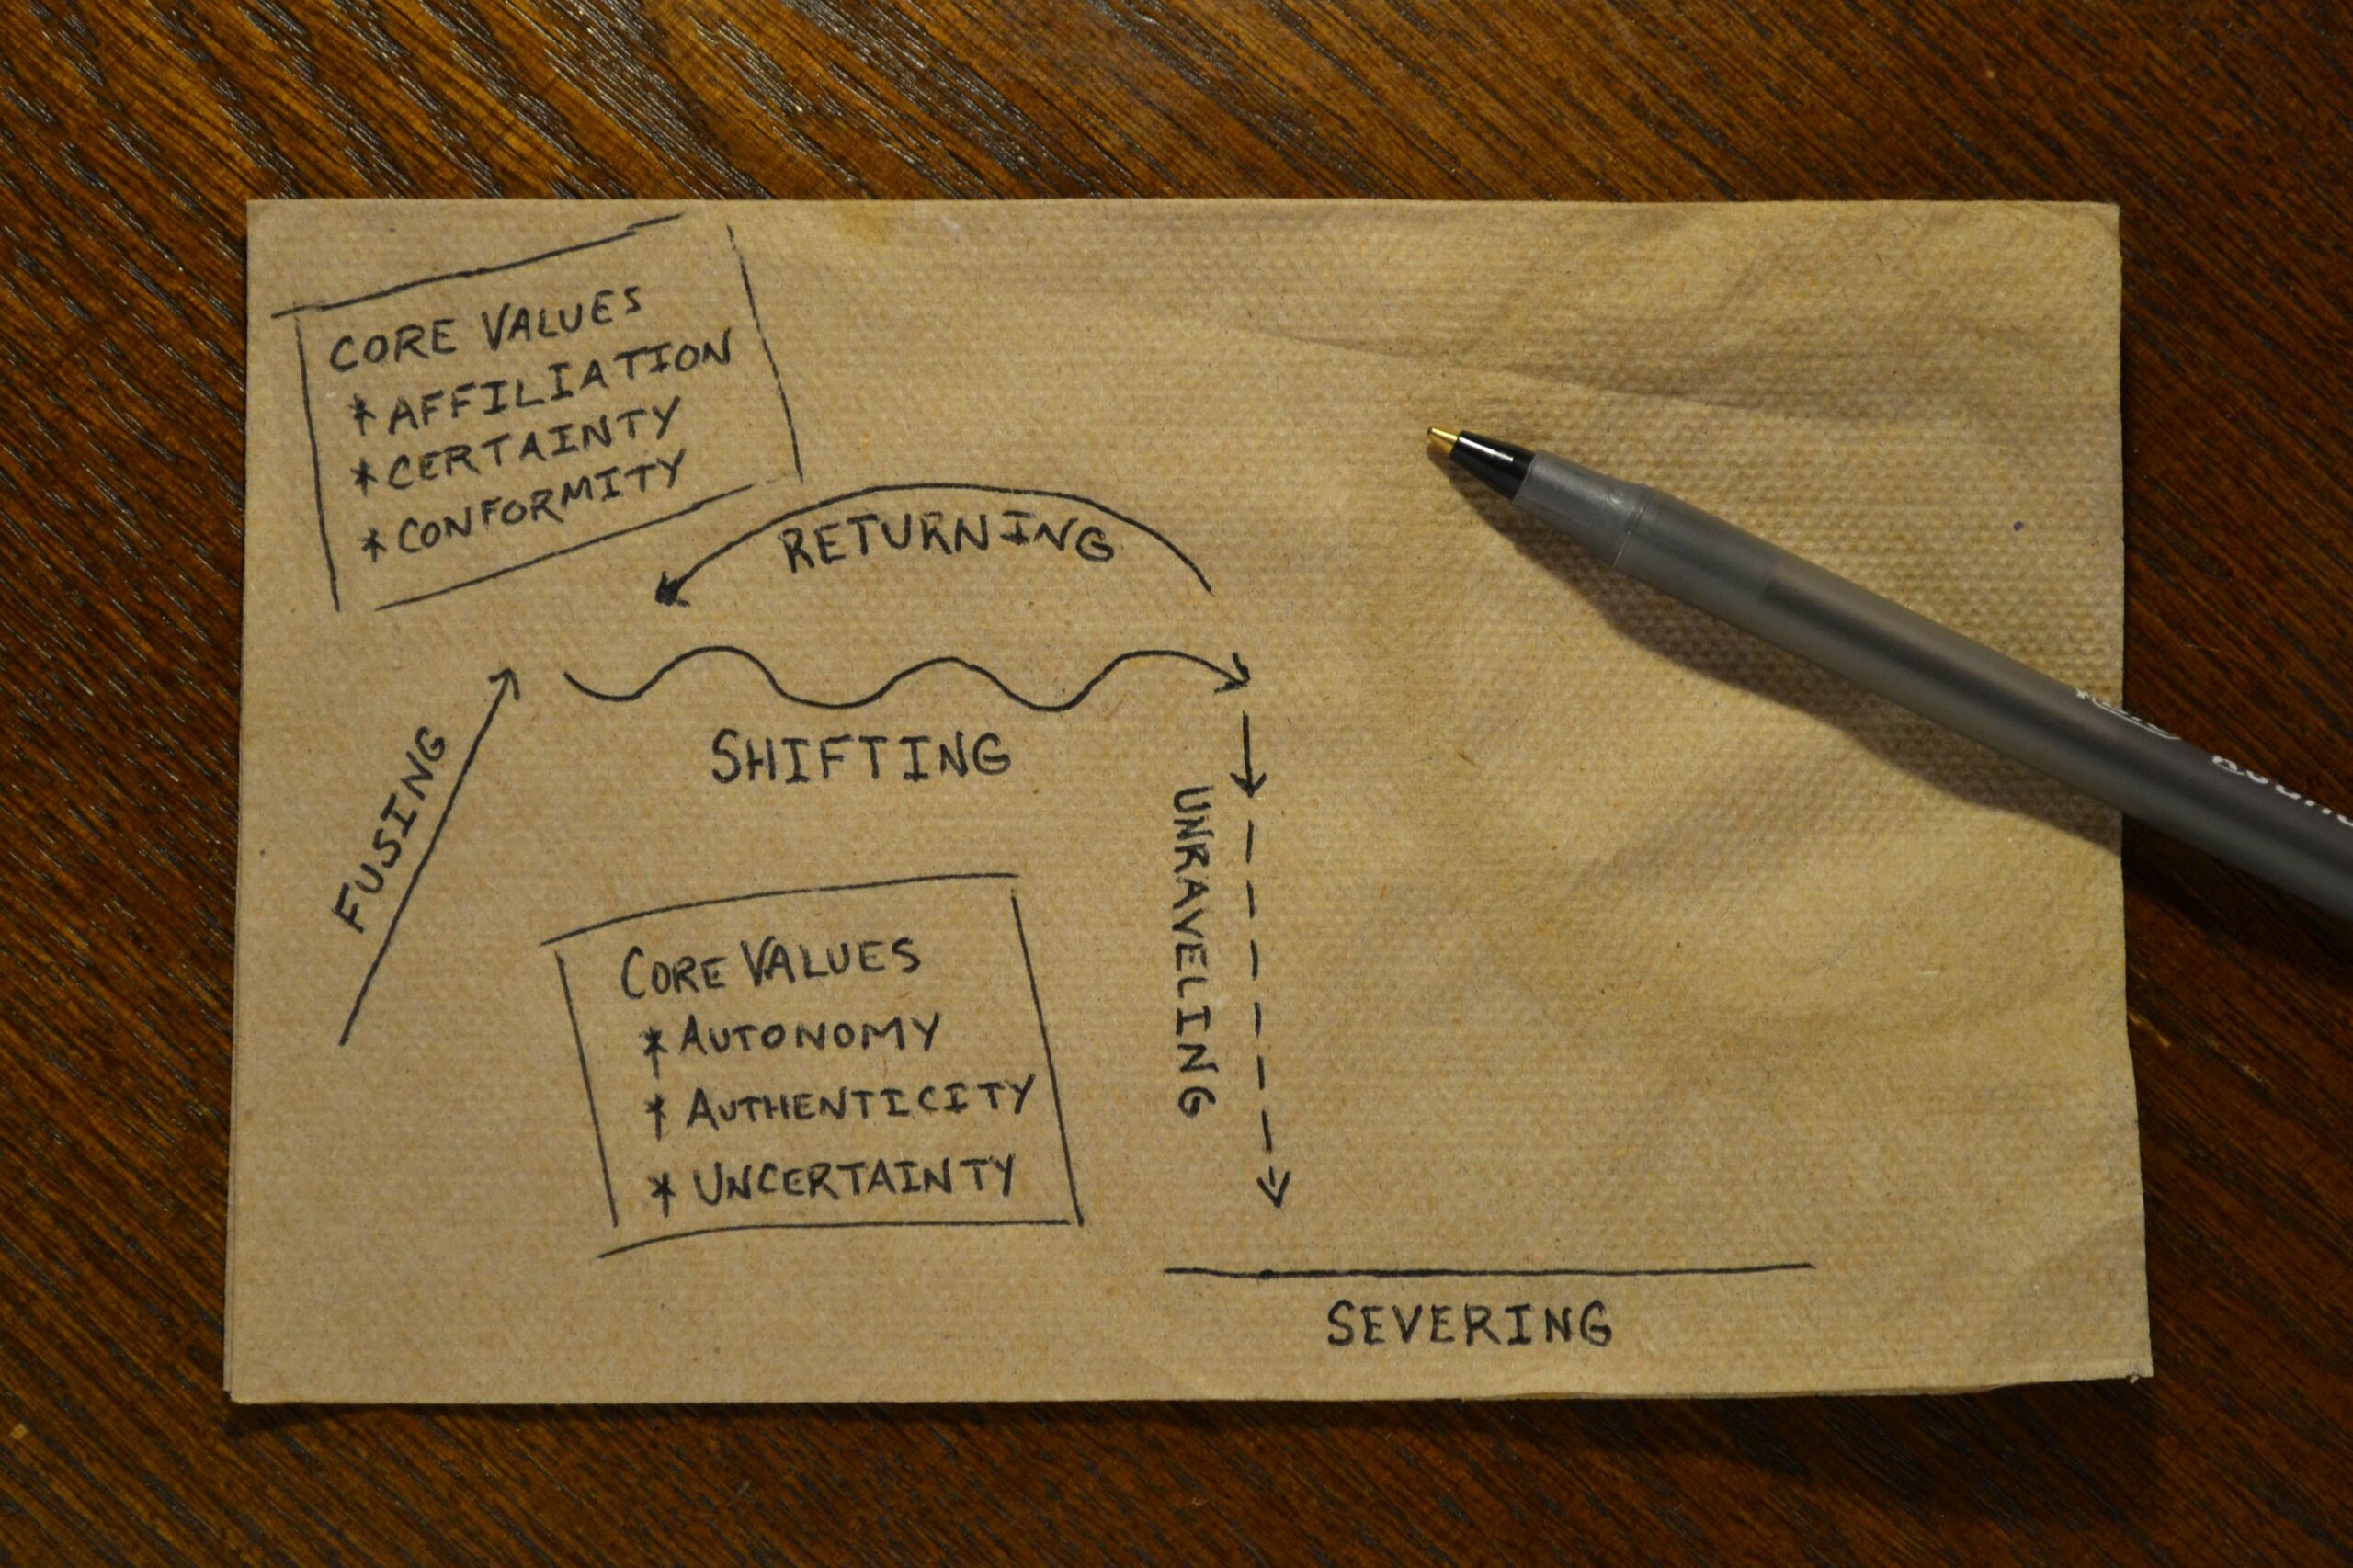 CORE VALUES
* AFFILIATION
* CERTAINTY
* CONFORMITY
RETURNING
SHIFTING
FUSING
UNRAVELING
CORE VALUES
* AUTONOMY
* AUTHENTICITY
* UNCERTAINTY
SEVERING